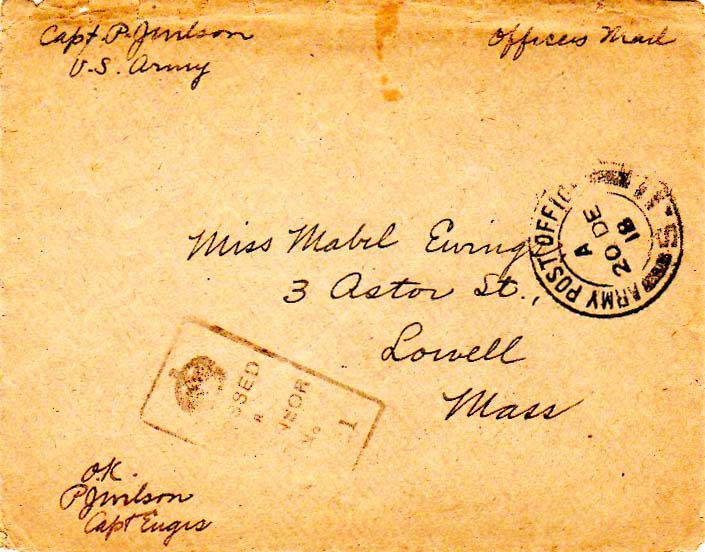 Capt. P. J. Wilson
U.S. Army
Officers Mail
ARMY POST OFFIC
A
20 DE
18
Miss Mabel Ewing
3 Astor St.,
Lowell
Mass
SSED
No 1
O.K.
P J Wilson
Capt Engrs